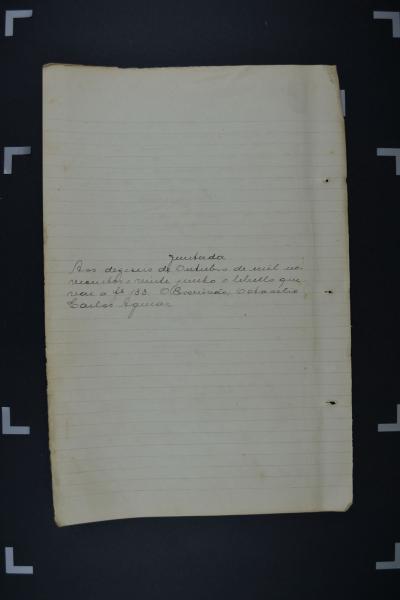 Juntada
Aos dezeseis de Outubro de mil no-
vecentos e vinte junto o libello que
vae a fs 133. O Escrivão, Octacilio
Carlos Aguiar